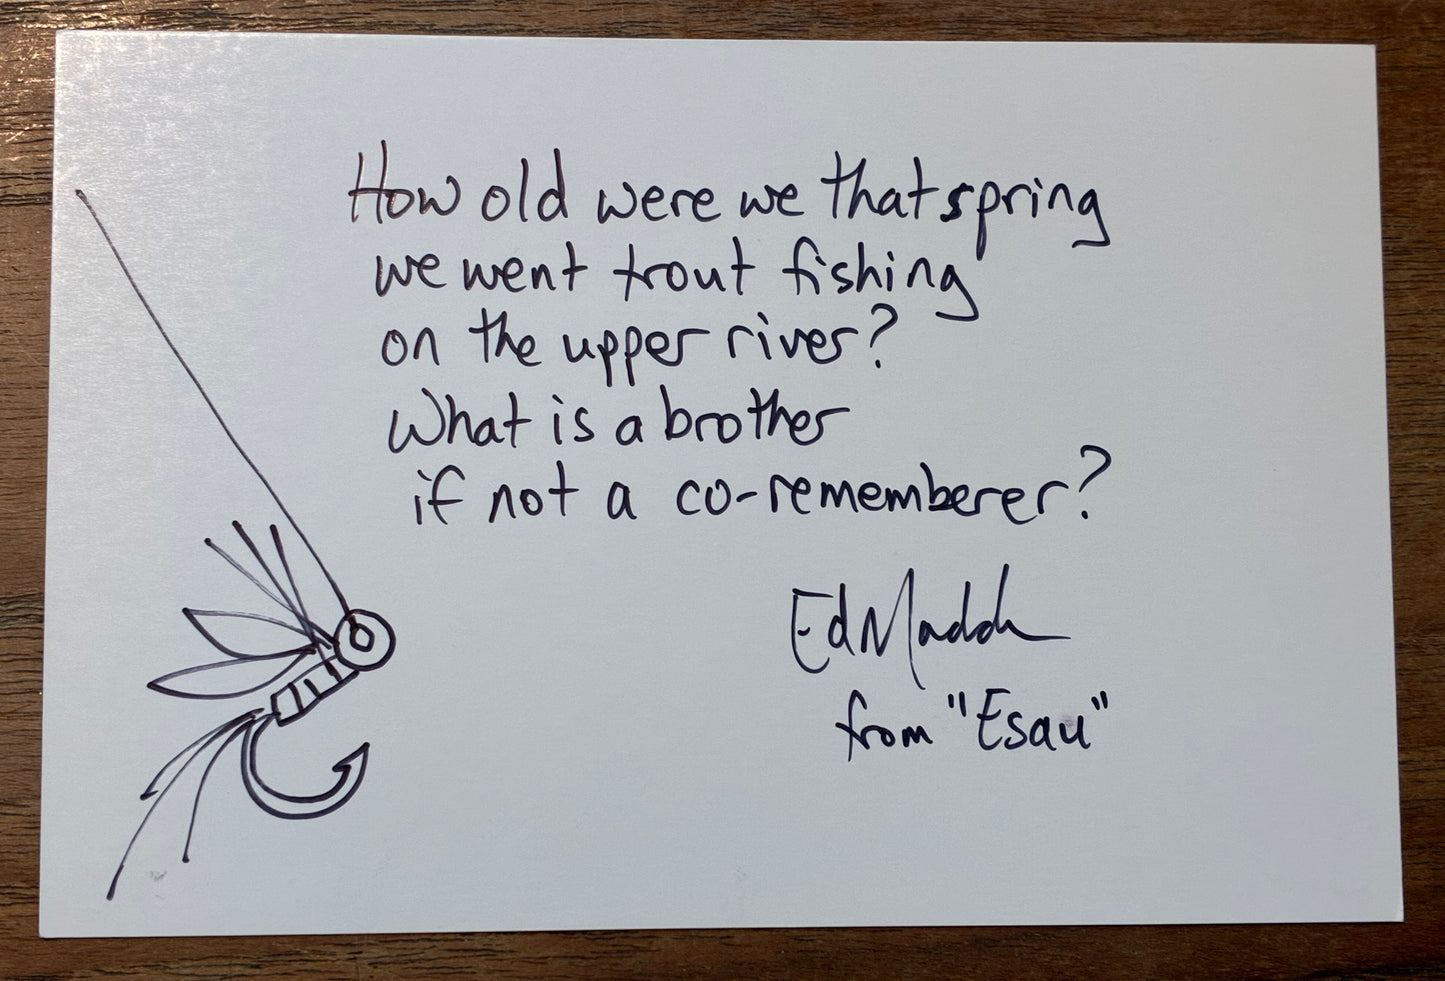 How old were we that spring
we went trout fishing
on the upper river?
What is a brother
if not a co-rememberer?
Ed Madden
from "Esau"